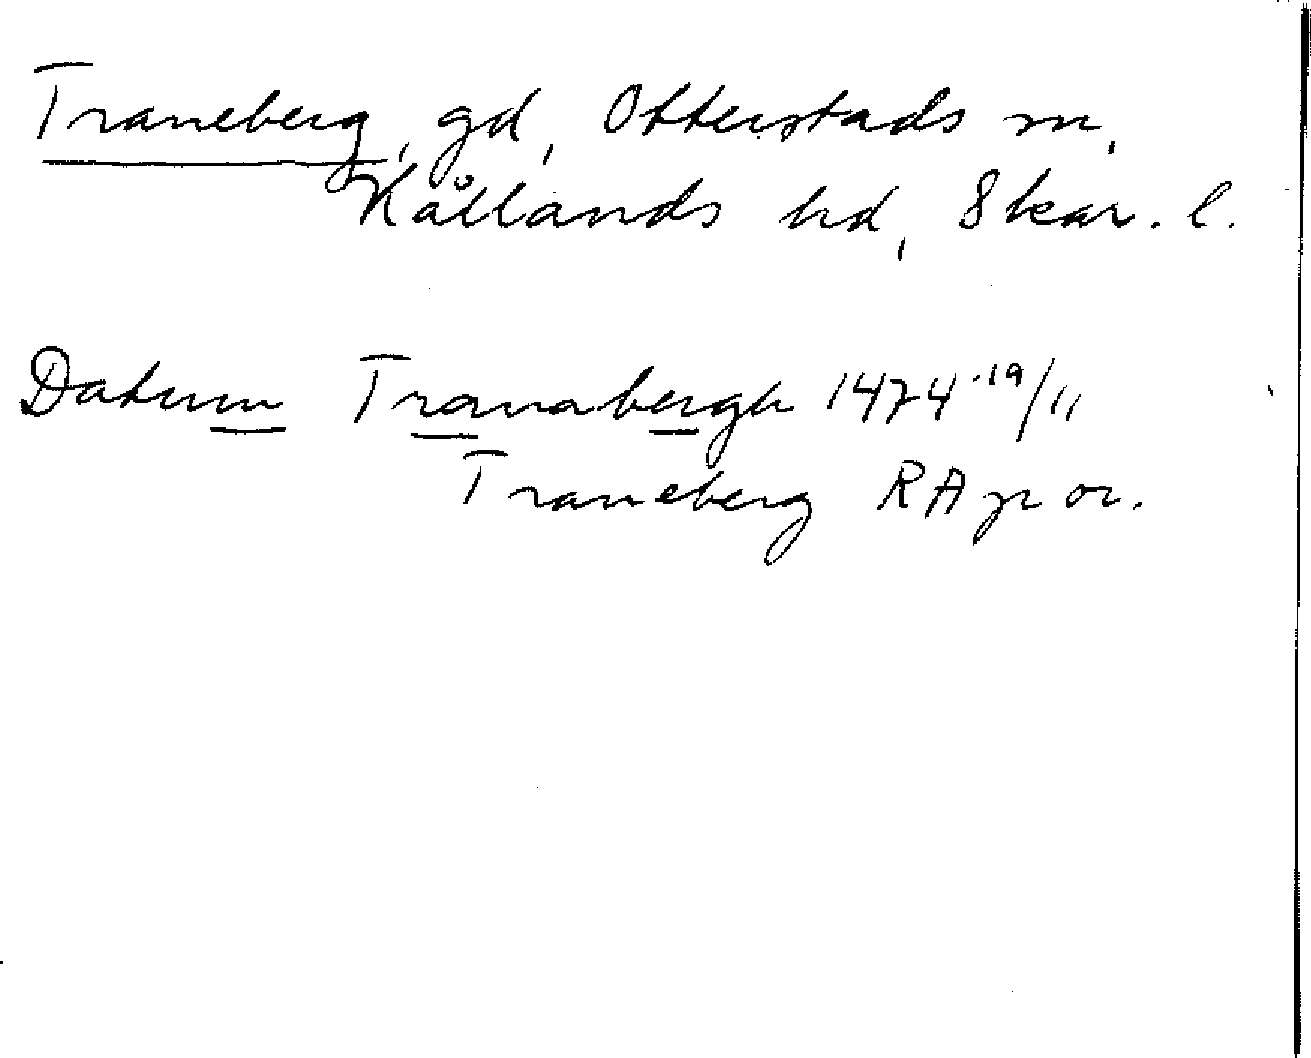 Traneberg, gd, Otterstads sn,
Kållands hd, Skar. l.
Datum Tranabergh 1474 19/11
Traneberg RA p or.